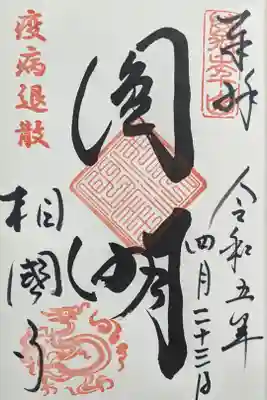 奉拝
萬年山
令和五年
四月二十三日
圓明
疫病退散
相國寺